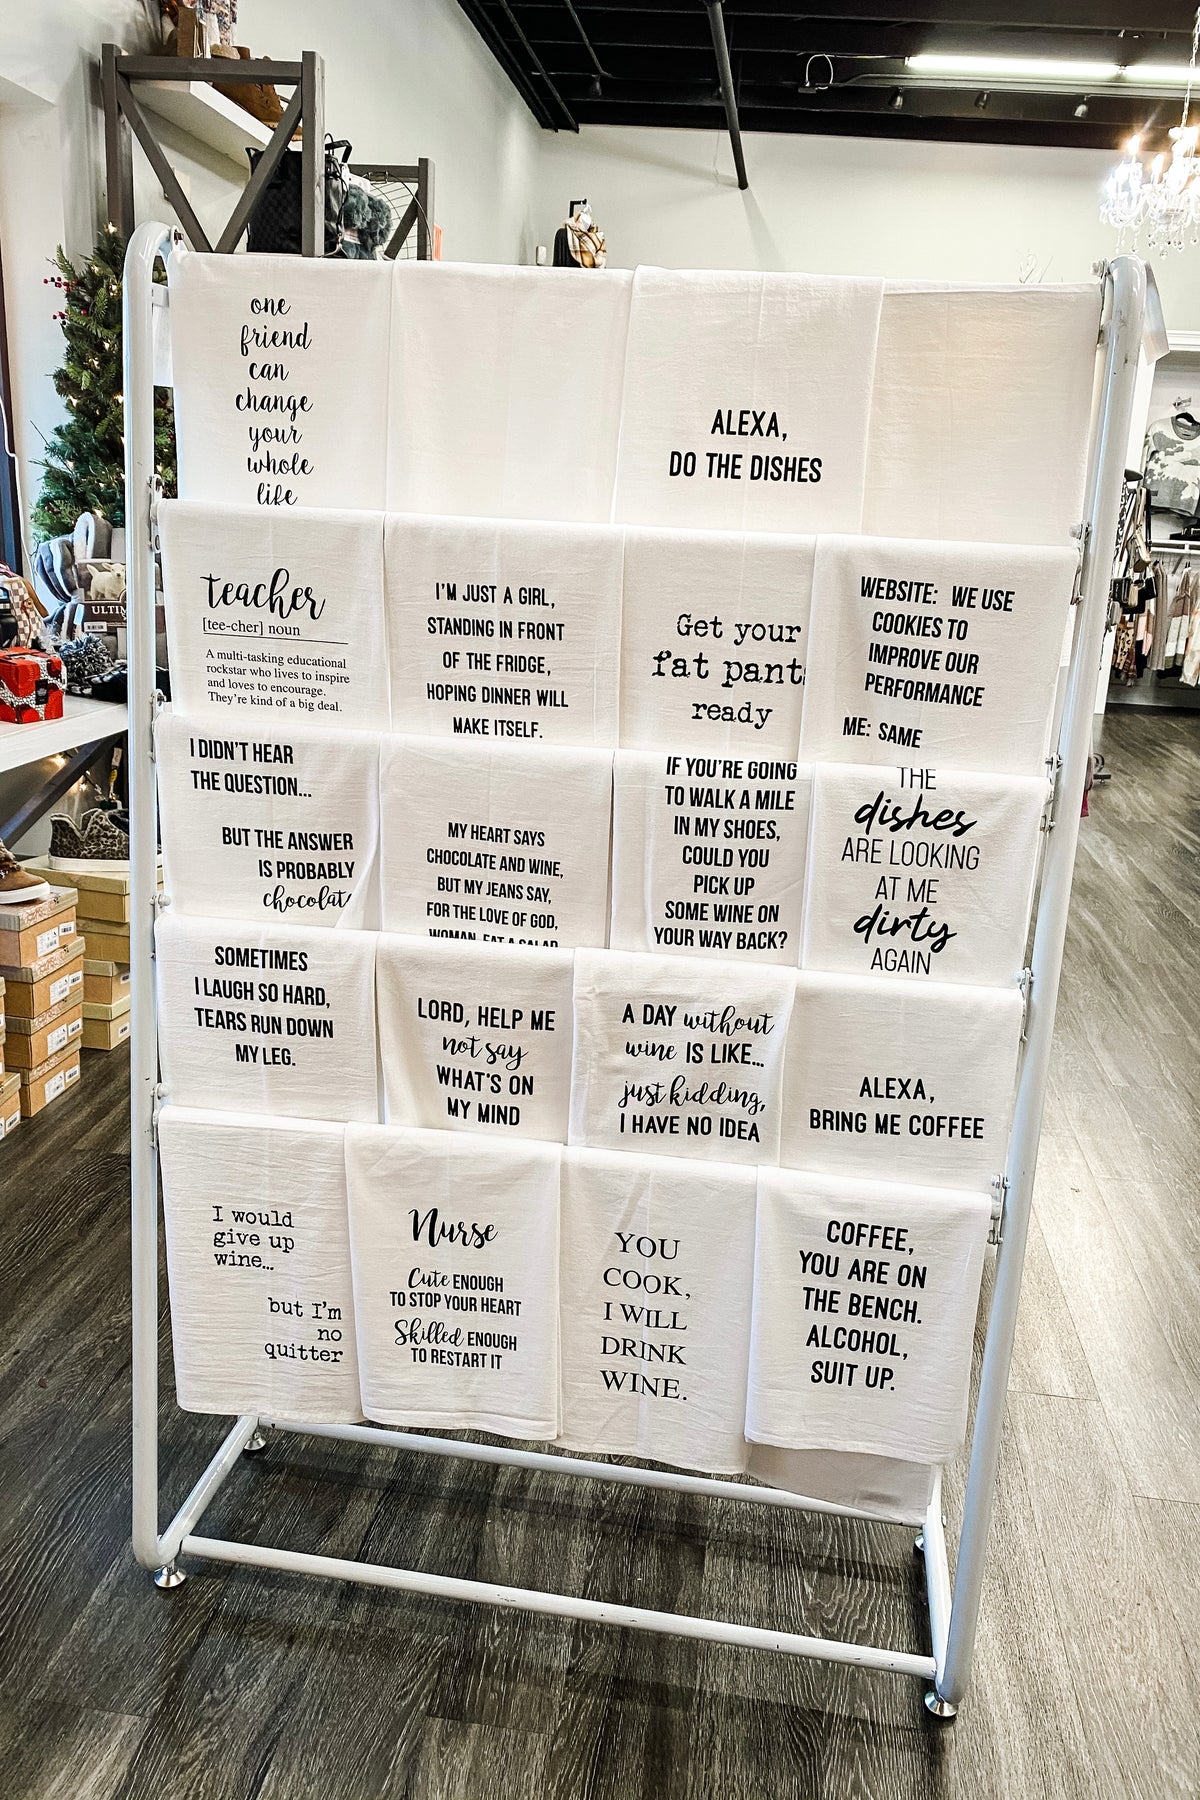 one
friend
can
change
your
whole
life
ALEXA,
DO THE DISHES
teacher
[tee-cher] noun
A multi-tasking educational
rockstar who lives to inspire
and loves to encourage.
They're kind of a big deal.
I'M JUST A GIRL,
STANDING IN FRONT
OF THE FRIDGE,
HOPING DINNER WILL
MAKE ITSELF.
Get your
fat pants
ready
WEBSITE: WE USE
COOKIES TO
IMPROVE OUR
PERFORMANCE
ME: SAME
I DIDN'T HEAR
THE QUESTION...
BUT THE ANSWER
IS PROBABLY
chocolat
MY HEART SAYS
CHOCOLATE AND WINE,
BUT MY JEANS SAY,
FOR THE LOVE OF GOD,
WOMAN, EAT A SALAD
IF YOU'RE GOING
TO WALK A MILE
IN MY SHOES,
COULD YOU
PICK UP
SOME WINE ON
YOUR WAY BACK?
THE
dishes
ARE LOOKING
AT ME
dirty
AGAIN
SOMETIMES
I LAUGH SO HARD,
TEARS RUN DOWN
MY LEG.
LORD, HELP ME
not say
WHAT'S ON
MY MIND
A DAY without
wine IS LIKE...
just kidding,
I HAVE NO IDEA
ALEXA,
BRING ME COFFEE
I would
give up
wine...
but I'm
no
quitter
Nurse
Cute ENOUGH
TO STOP YOUR HEART
Skilled ENOUGH
TO RESTART IT
YOU
COOK,
I WILL
DRINK
WINE.
COFFEE,
YOU ARE ON
THE BENCH.
ALCOHOL,
SUIT UP.
ULTI